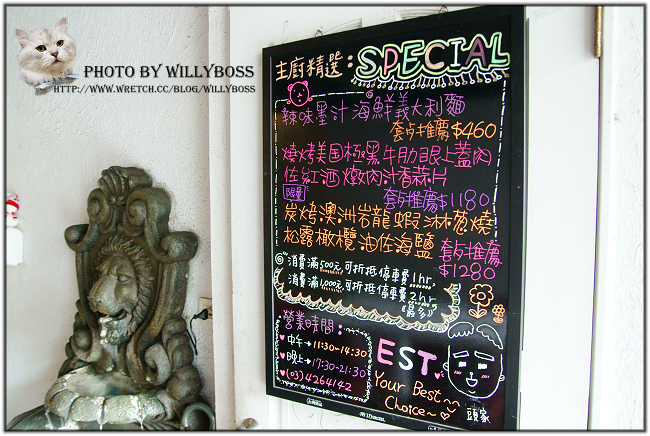 PHOTO BY WILLYBOSS
HTTP://WWW.WRETCH.CC/BLOG/WILLYBOSS
主廚精選：SPECIAL
辣味墨汁海鮮義大利麵
套點推薦$460
燒烤美国極黑牛肋眼上蓋肉
佐紅酒燉肉汁香蒜片
限量 套点推薦$1180
炭烤澳洲岩龍蝦淋葱燒
松露橄欖油佐海鹽 套点推薦
$1280
消費滿500元,可折抵停車費1hr,
消費滿1,000元,可折抵停車費2hr
營業時間：
中午→11:30-14:30
晚上→17:30-21:30
(03)4264142
EST.
Your Best~
Choice~
頭家